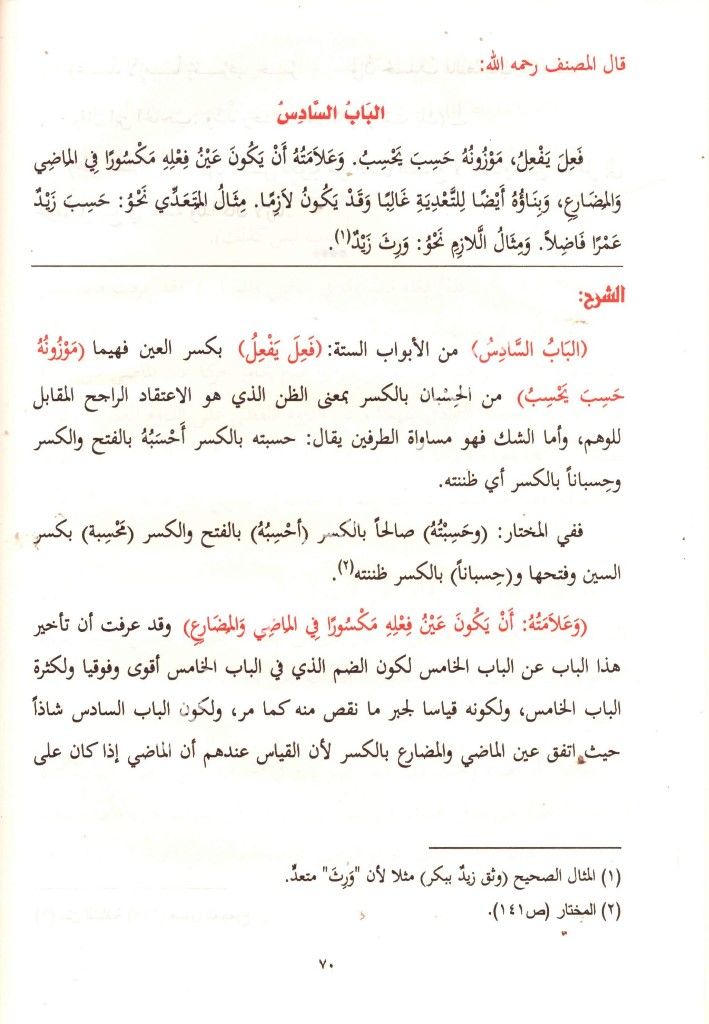 قال المصنف رحمه الله:
البَابُ السَّادِسُ
فَعِلَ يَفْعِلُ، مَوْزُونُهُ حَسِبَ يَحْسِبُ. وَعَلاَمَتُهُ أَنْ يَكُونَ عَيْنُ فِعْلِهِ مَكْسُورًا فِي الماضِي
وَالمضَارِعِ، وَبِنَاؤُهُ أَيْضًا لِلتَّعْدِيَةِ غَالِبًا وَقَدْ يَكُونُ لاَزِمًا. مِثَالُ المتَعَدِّي نَحْوُ: حَسِبَ زَيْدٌ
عَمْرًا فَاضِلاً. وَمِثَالُ اللَّازِمِ نَحْوُ: وَرِثَ زَيْدٌ(١).
الشرح:
(البَابُ السَّادِسُ) من الأبواب الستة: (فَعِلَ يَفْعِلُ) بكسر العين فهيما (مَوْزُونُهُ
حَسِبَ يَحْسِبُ) من الحِسْبان بالكسر بمعنى الظن الذي هو الاعتقاد الراجح المقابل
للوهم، وأما الشك فهو مساواة الطرفين يقال: حسبته بالكسر أَحْسَبُهُ بالفتح والكسر
وحِسباناً بالكسر أي ظننته.
ففي المختار: (وحَسِبْتُهُ) صالحاً بالكسر (أحْسِبُهُ) بالفتح والكسر (مَحْسِبة) بكسر
السين وفتحها و(حِسباناً) بالكسر ظننته(٢).
(وَعَلاَمَتُهُ: أَنْ يَكُونَ عَيْنُ فِعْلِهِ مَكْسُورًا فِي الماضِي وَالمضَارِعِ) وقد عرفت أن تأخير
هذا الباب عن الباب الخامس لكون الضم الذي في الباب الخامس أقوى وفوقيا ولكثرة
الباب الخامس، ولكونه قياسا لجبر ما نقص منه كما مر، ولكون الباب السادس شاذاً
حيث اتفق عين الماضي والمضارع بالكسر لأن القياس عندهم أن الماضي إذا كان على
(١) المثال الصحيح (وثق زيدٌ ببكر) مثلا لأن "وَرِثَ" متعدٍّ.
(٢) المختار (ص١٤١).
٧٠